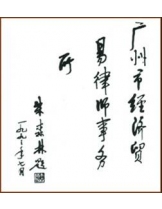 广州市经济贸
易律师事务
所
朱森林题
一九九一年七月